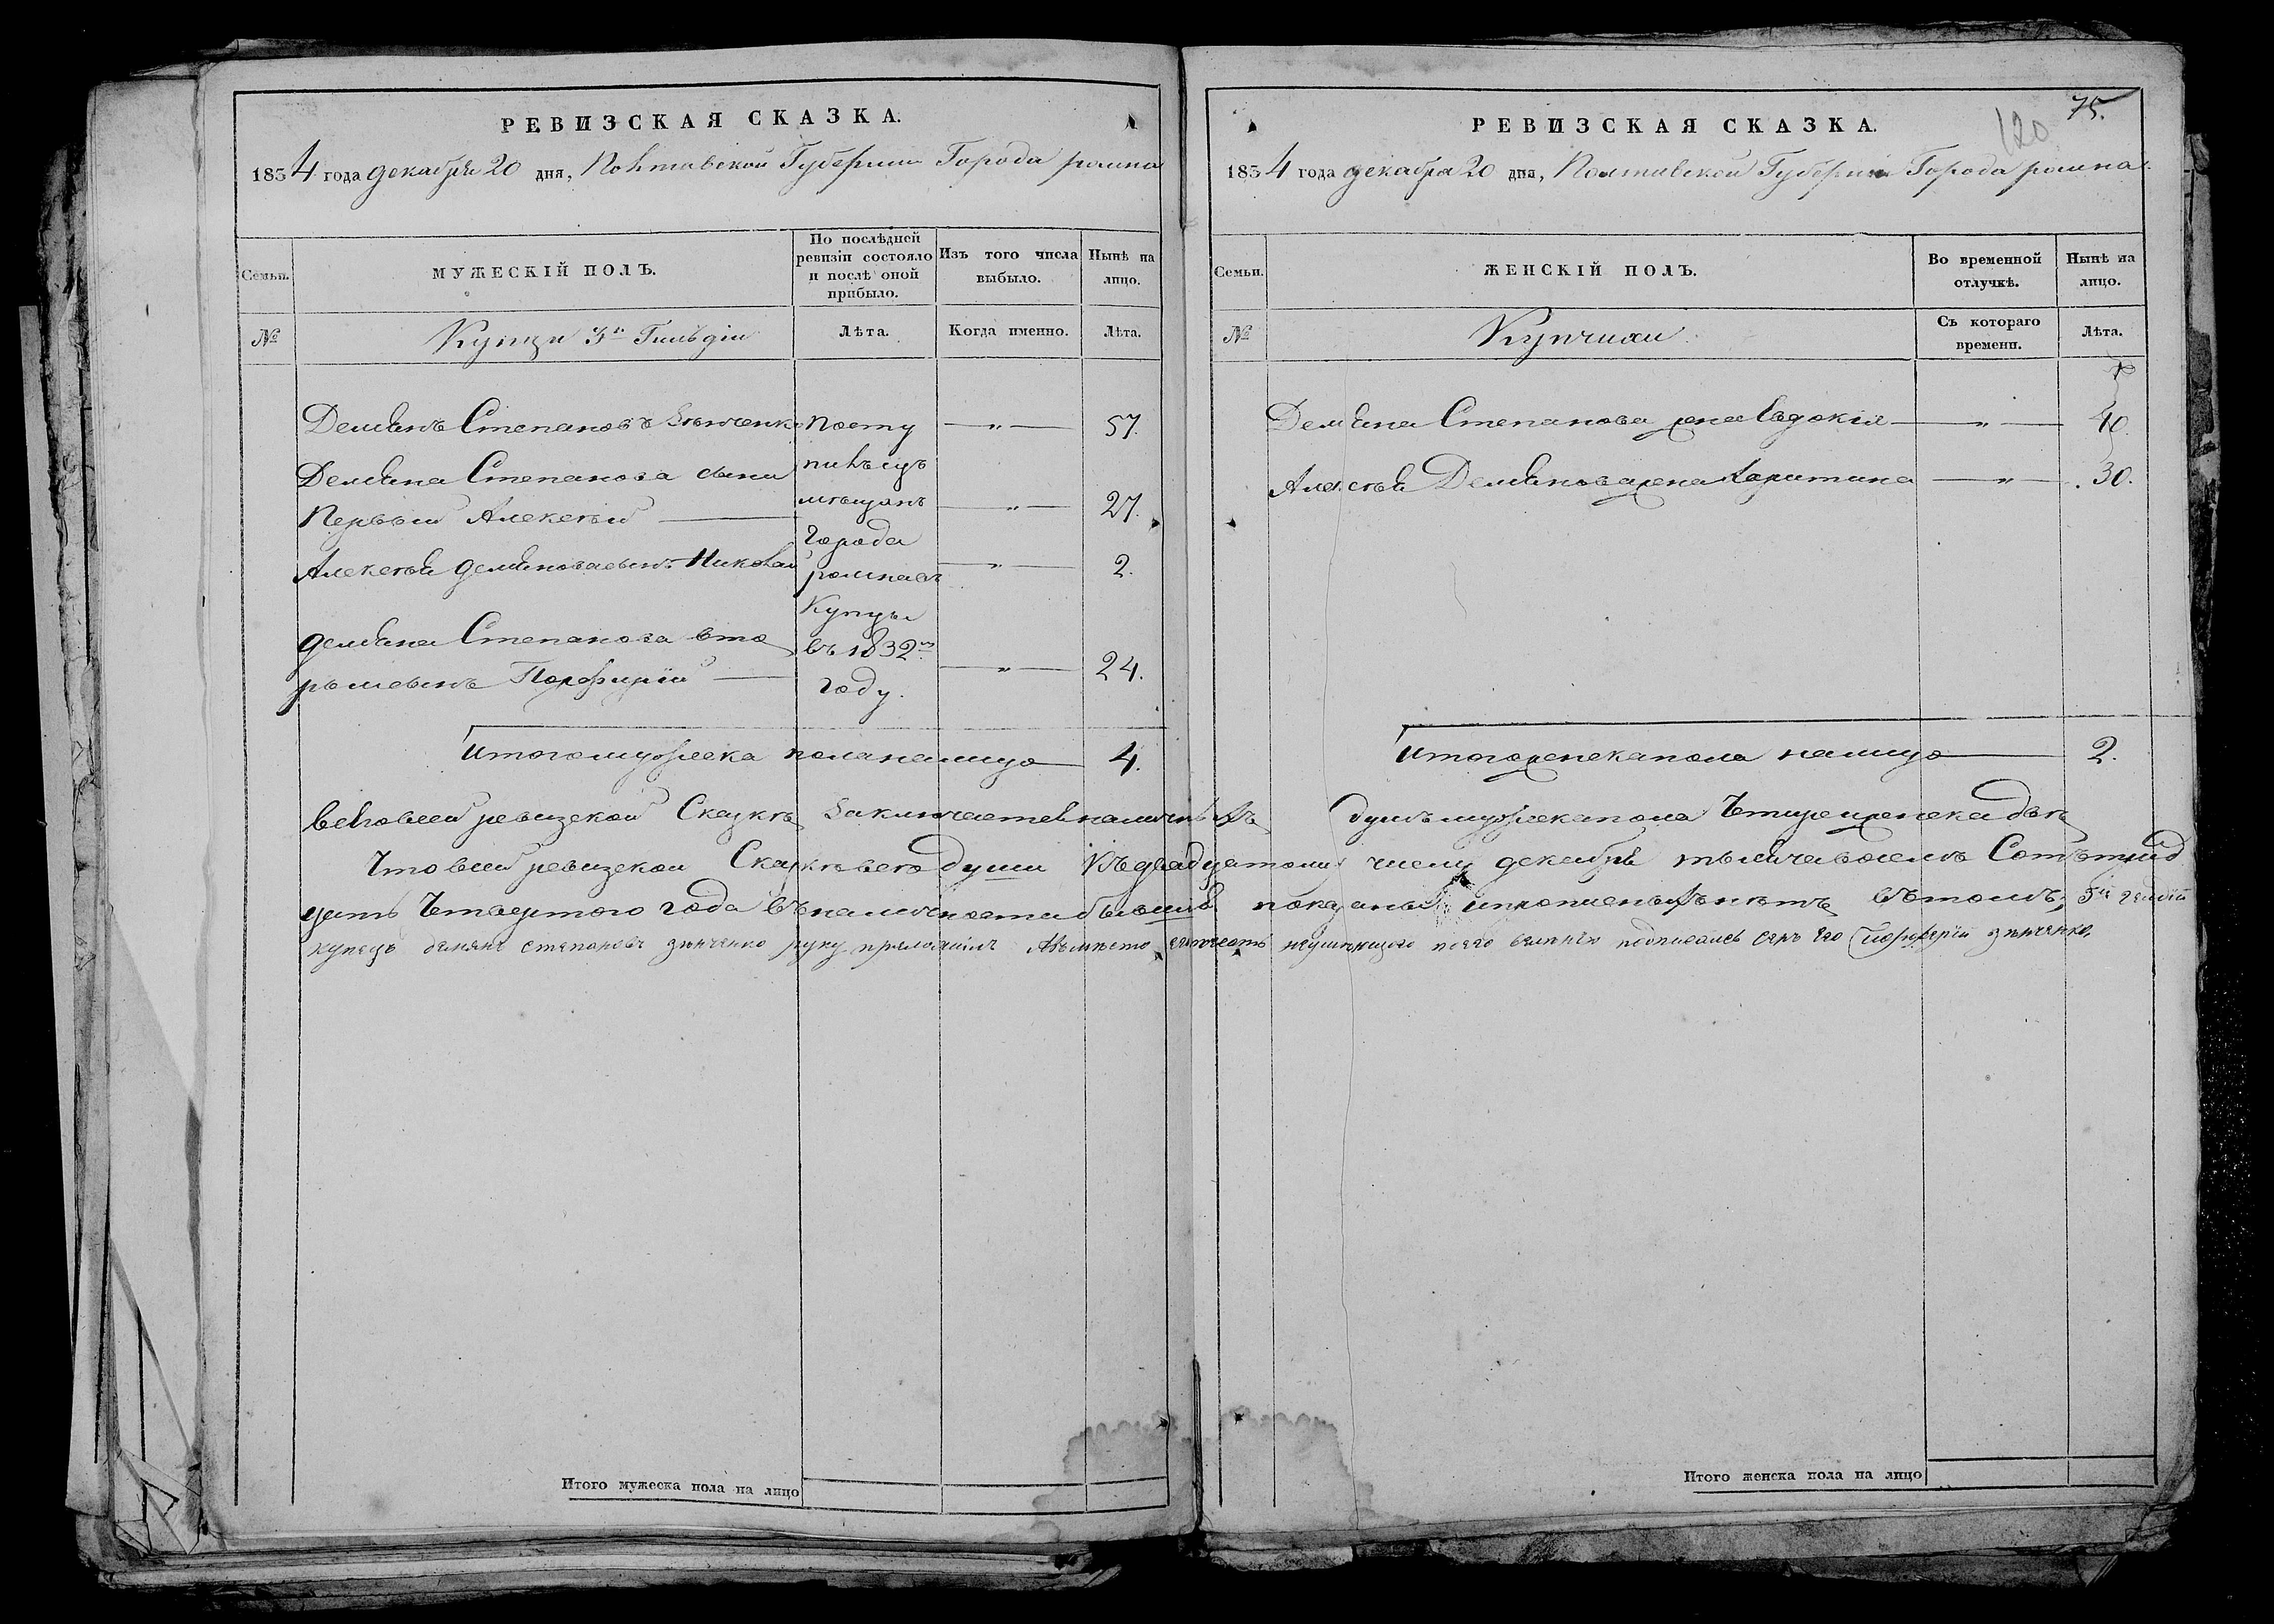 РЕВИЗСКАЯ СКАЗКА.
1834 года декабря 20 дня, Полтавской Губернии Города ромна
Семьи.
МУЖЕСКІЙ ПОЛЪ.
По послѣдней ревизіи состояло и послѣ оной прибыло.
Изъ того числа выбыло.
Нынѣ на лицо.
№
Купцы 3й Гильдіи
Лѣта.
Когда именно.
Лѣта.
Демянъ Степановъ Зѣнченко
Поступилъ изъ мѣщанъ Города ромна въ Купцы въ 1832м году.
—"— 57.
Демяна Степанова сыны
Первый Алексѣй —"— 27.
Алексѣя Демянова сынъ Николай —"— 2.
Демяна Степанова вто
рый сынъ Порфирій —"— 24.
Итого мужеска пола налицо 4.
Итого мужеска пола на лицо
75.
120
РЕВИЗСКАЯ СКАЗКА.
1834 года декабря 20 дня, Полтавской Губерніи Города ромна.
Семьи.
ЖЕНСКІЙ ПОЛЪ.
Во временной отлучкѣ.
Нынѣ на лицо.
№
Купчихи
Съ котораго времени.
Лѣта.
Демяна Степанова жена Евдокія —"— 40.
Алексѣя Демянова жена Харитина —"— 30.
Итого женска пола налицо 2.
Всего въ сей ревизской Сказкѣ Заключается наличныхъ душъ мужеска пола Четыре и женска двѣ
Что въ сей ревизской Сказкѣ всѣ души Къ двадцатому числу декабря тысяча восемь Сотъ трид
цать Четвертого года въ наличности бывшия показаны и прописныхъ нѣтъ въ томъ, 3й гилдіи
купецъ демянъ степановъ зѣнченко руку приложилъ Авмѣсто его неумѣющаго по его велѣнію подписался сынъ его Порфирій зѣнченко.
Итого женска пола на лицо